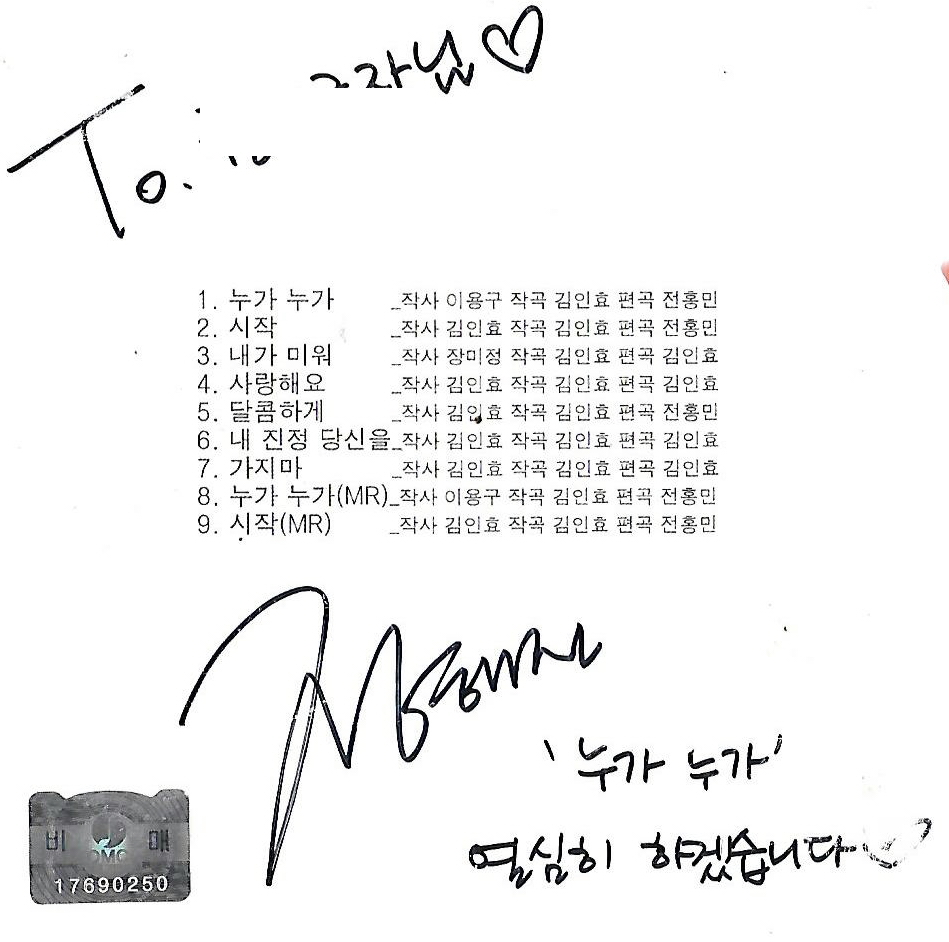 To.
님♡
1. 누가 누가 _작사 이용구 작곡 김인효 편곡 전홍민
2. 시작 _작사 김인효 작곡 김인효 편곡 전홍민
3. 내가 미워 _작사 장미정 작곡 김인효 편곡 김인효
4. 사랑해요 _작사 김인효 작곡 김인효 편곡 김인효
5. 달콤하게 _작사 김인효 작곡 김인효 편곡 전홍민
6. 내 진정 당신을_작사 김인효 작곡 김인효 편곡 김인효
7. 가지마 _작사 김인효 작곡 김인효 편곡 김인효
8. 누가 누가(MR)_작사 이용구 작곡 김인효 편곡 전홍민
9. 시작(MR) _작사 김인효 작곡 김인효 편곡 전홍민
'누가 누가'
열심히 하겠습니다♡
비 매
17690250